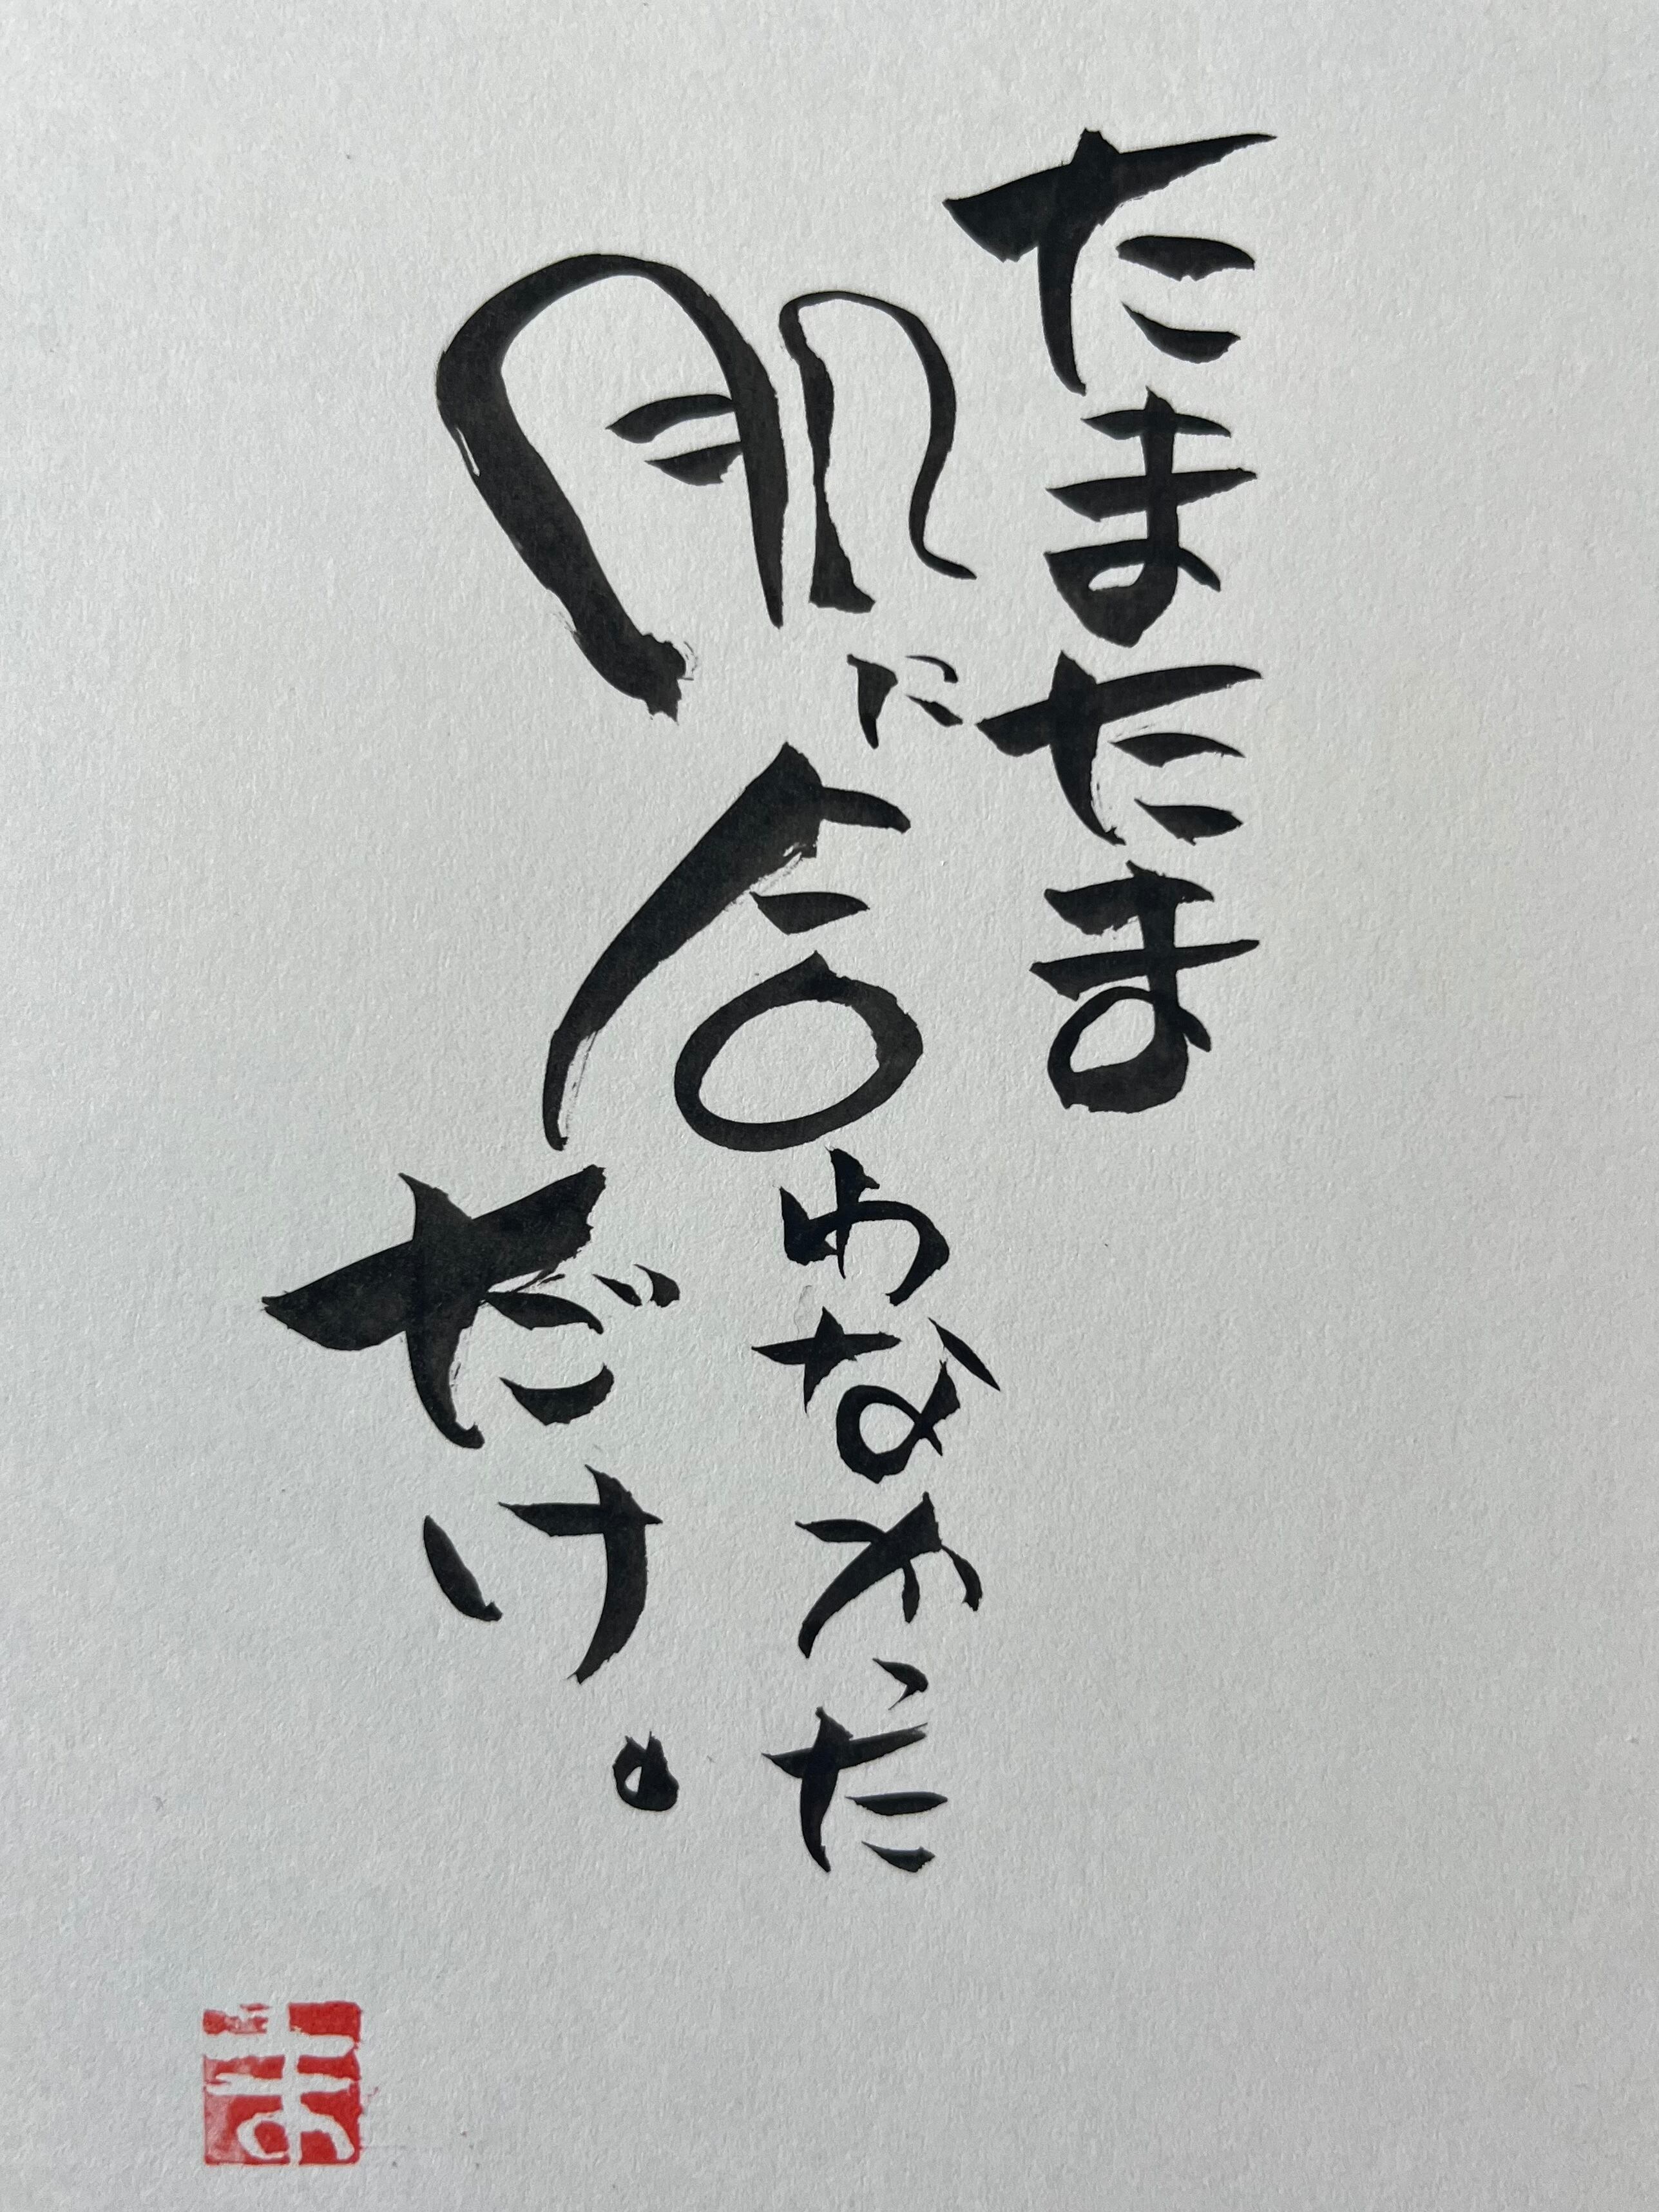 たまたま
肌に合わなかった
だけ。
ま